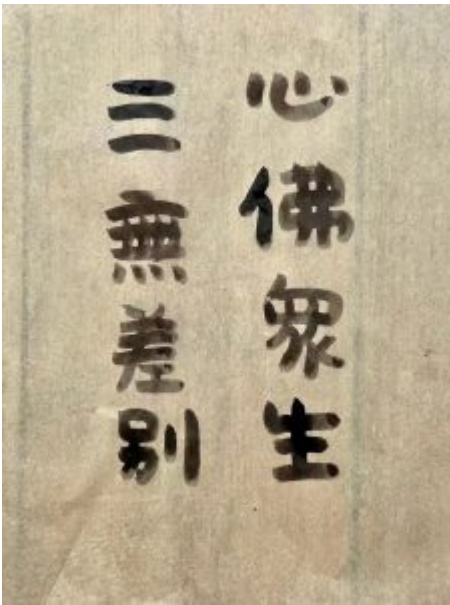 心佛衆生
三無差别